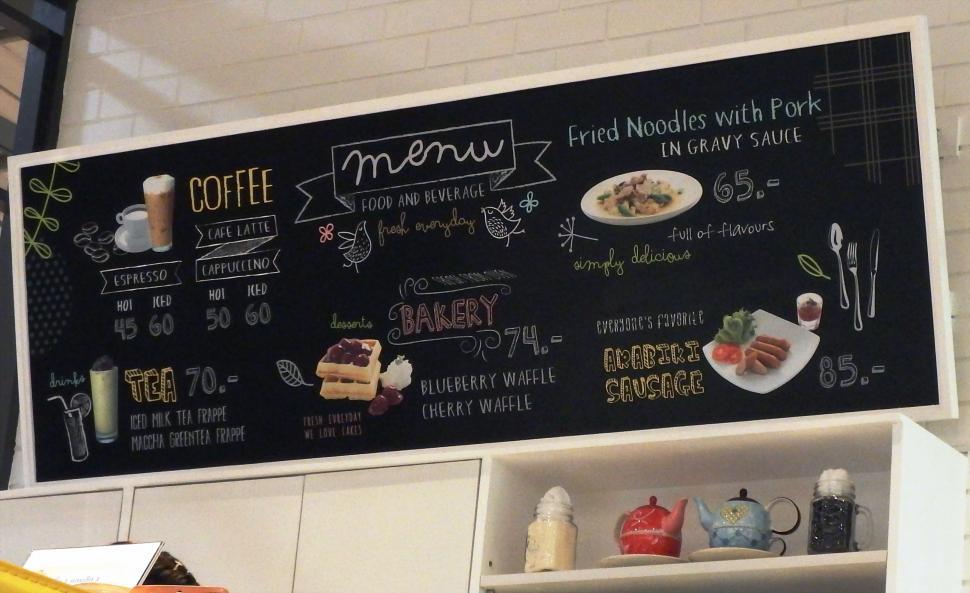 COFFEE
CAFE LATTE
CAPPUCCINO
ESPRESSO
HOT ICED
45 60
HOT ICED
50 60
drinks
TEA 70.-
ICED MILK TEA FRAPPE
MACCHA GREENTEA FRAPPE
menu
FOOD AND BEVERAGE
fresh everyday
BAKERY
desserts
74.-
BLUEBERRY WAFFLE
CHERRY WAFFLE
FRESH EVREYDAY
WE LOVE CAKES
Fried Noodles with Pork
IN GRAVY SAUCE
65.-
full of flavours
simply delicious
everyone's favorite
ARABIKI
SAUSAGE
85.-